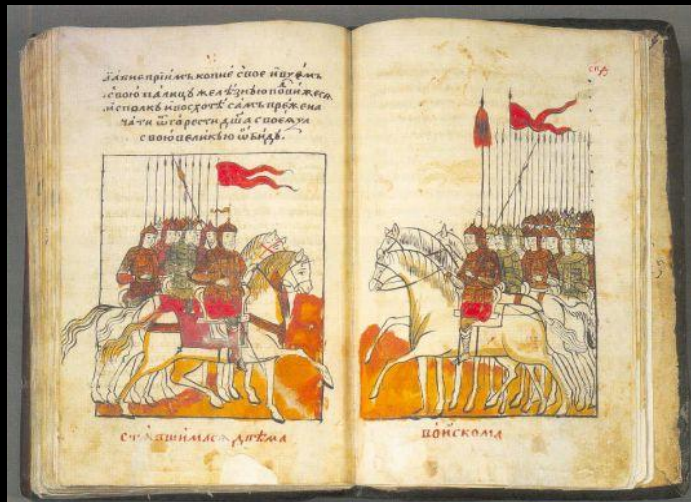 и абие приимъ копие свое и вземъ
свою палицу желѣзную подвижеся
ис полку и восхотѣ самъ преже на
чати ѿ горести дша своея за
свою великую ѡбиду.
ставшимася двѣма
воискома